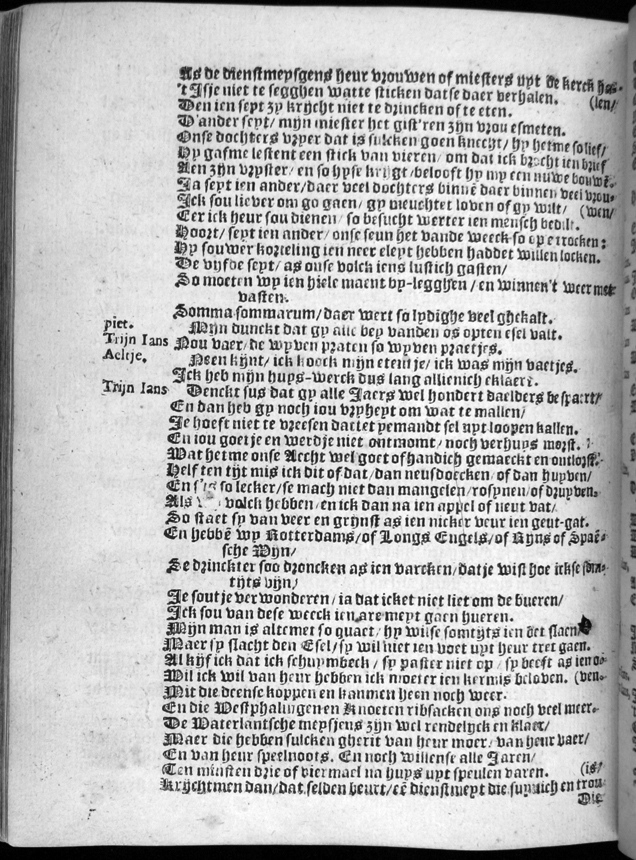 As de dienstmeysgens heur vrouwen of miesters uyt de kerck ha-
't Isse niet te segghen watte sticken datse daer verhalen. (len/
Den ien seyt zy krijcht niet te drincken of te eten.
D'ander seyt/ mijn miester het gist'ren zijn vrou esmeten.
Onse dochters vryer dat is sulcken goen knecht/ hy het me so lief/
Hy gafme lestent een stick van vieren/ om dat ick brocht ien brief
Aen zijn vryster/ en so hyse krijgt/ belooft hy my een nuwe bouwē.
Ja seyt ien ander/ daer veel dochters binnē daer binnen veel vrou-
Ick sou liever om go gaen/ gy meuchtet loven of gy wilt/ (wen/
Eer ick heur sou dienen/ so besucht werter ien mensch bedilt.
Hoort/ seyt ien ander/ onse seun het vande weeck so op etrocken:
Hy sou wer korteling ien neer eleyt hebben haddet willen locken.
De vijfde seyt/ as onse volck iens lustich gasten/
So moeten wy ien hiele maent by-legghen/ en winnen't weer met
vasten.
Somma sommarum/ daer wert so lydighe veel ghekalt.
piet. Mijn dunckt dat gy alle bey vanden os opten esel valt.
Trijn Ians Nou vaer/ de wyven praten so wyven praetjes.
Aeltje. Neen kijnt/ ick hoock mijn etem je/ ick was mijn vaetjes.
Ick heb mijn huys-werck dus lang allienich eklaert.
Trijn Ians Denckt sus dat gy alle Jaers wel hondert daelders bespaert/
En dan heb gy noch iou vryheyt om wat te mallen/
Je hoeft niet te vreesen dattet yemandt sel uyt loopen kallen.
En iou goetje en werdje niet ontmomt/ noch verhuys morst.
Wat het me onse Aecht wel goet of handich gemaeckt en ontlorst.
Helf ten tijt mis ick dit of dat/ dan neusdoecken/ of dan huyven/
En so lecker/ se mach niet dan mangelen/ rosynen/ of druyven.
Als volck hebben/ en ick dan na ien appel of neut vat/
So staet sy van veer en grijnst as ien nicker veur ien geut-gat.
En hebbē wy Rotterdams/ of Longs Engels/ of Rijns of Spaē-
sche Wijn/
Se drinckter soo droncken as ien varcken/ dat je wist hoe ickse som-
tijts vijn/
Je sout je verwonderen/ ia dat icket niet liet om de bueren/
Ick sou van dese weeck ien are meyt gaen hueren.
Mijn man is altemet so quaet/ hy wilse somtijts ien det slaen/
Maer sy slacht den Esel/ sy wil niet ien voet uyt heur tret gaen.
Al kijf ick dat ick schuymbeck/ sy paster niet op/ sy beest as ien o-
Wil ick wil van heur hebben ick moeter ien kermis beloven. (ven.
Mit die deense koppen en kanmen heen noch weer.
En die Westphalingen en Knoeten ribsacken ons noch veel meer.
De Waterlantsche meysjens zijn wel rendelyck en klaer/
Maer die hebben sulcken gherit van heur moer/ van heur vaer/
En van heur speelnoots. En noch willense alle Jaren/
Ten minsten drie of viermael na huys uyt speulen varen. (is/
Krijchtmen dan/ dat selden beurt/ eē dienstmeyt die suynich en trou
Die